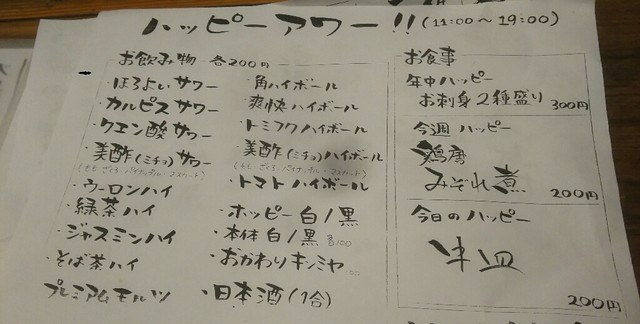 ハッピーアワー!! (11:00～19:00)
お飲み物 各200円
・ほろよいサワー
・カルピスサワー
・クエン酸サワー
・美酢(ミチョ)サワー
・ウーロンハイ
・緑茶ハイ
・ジャスミンハイ
・そば茶ハイ
プレミアムモルツ
・角ハイボール
・爽快ハイボール
・トミフクハイボール
・美酢(ミチョ)ハイボール
・トマトハイボール
・ホッピー白/黒
・本体白/黒 各100
・おかわりキンミヤ
・日本酒(1合)
お食事
年中ハッピー
お刺身2種盛り 300円
今週ハッピー
鶏唐
みぞれ煮
200円
今日のハッピー
200円